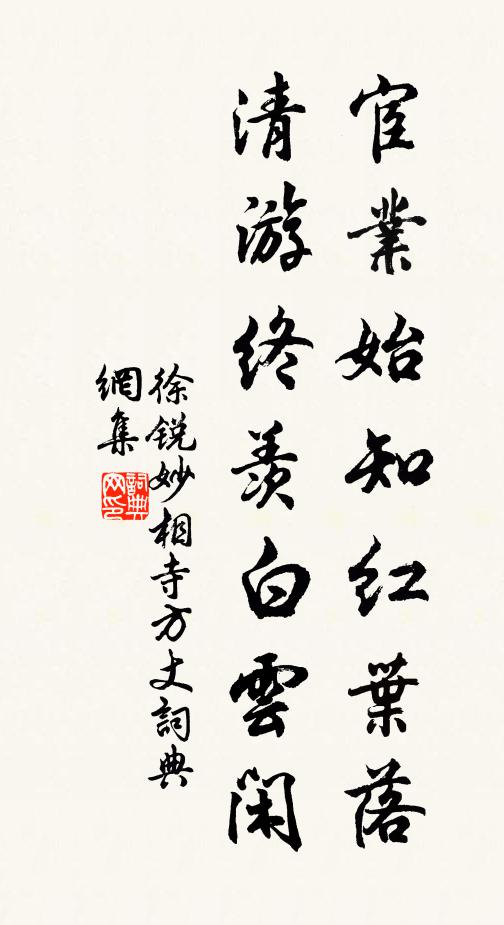 宦業始知紅葉落
清游終羨白雲閑
徐銳妙相寺方丈詞典
網集
詞典网印